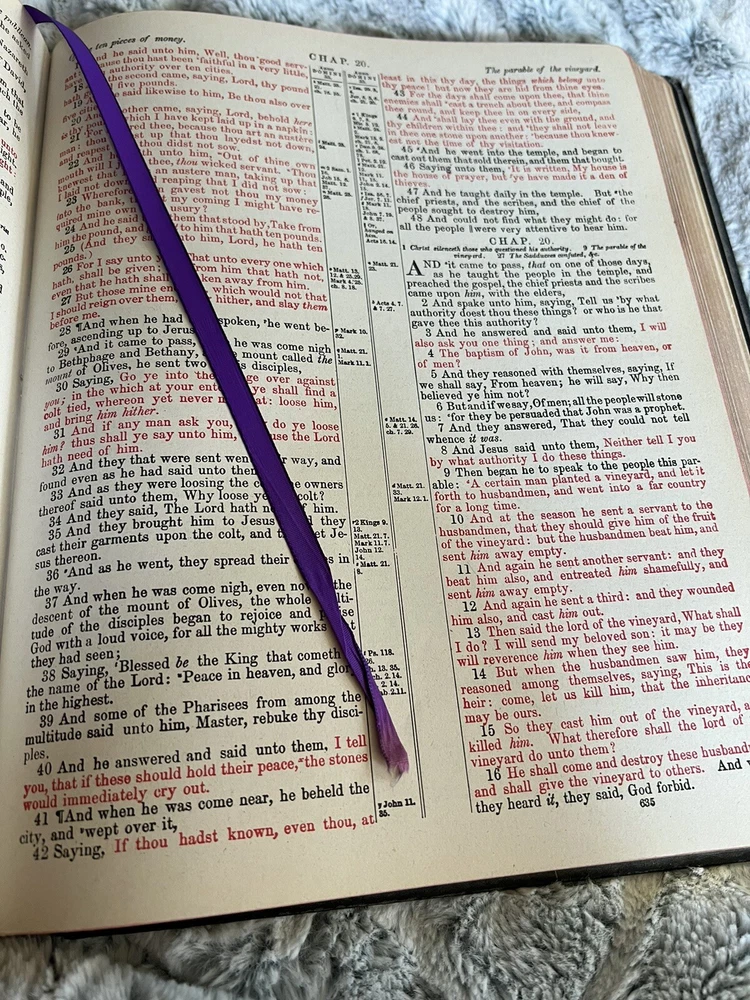 publican.
he asked
Nazareth
David,
ten pieces of money.
CHAP. 20.
The parable of the vineyard.
and he said unto him, Well, thou good serv-
because thou hast been faithful in a very little,
authority over ten cities.
18 the second came, saying, Lord, thy pound
five pounds.
19 he said likewise to him, Be thou also over
five
20 another came, saying, Lord, behold here
which I have kept laid up in a napkin:
21 feared thee, because thou art an austere
up that thou layedst not down,
thou didst not sow.
22 unto him, Out of thine own
mouth will I thee, thou wicked servant. Thou
knewest that an austere man, taking up that
I laid not down reaping that I did not sow:
23 Wherefore gavest not thou my money
into the bank, my coming I might have re-
quired mine own usury?
24 And he said them that stood by, Take from
him the pound, and to him that hath ten pounds.
25 (And they unto him, Lord, he hath ten
pounds.)
26 For I say unto that unto every one which
hath, shall be given; from him that hath not,
even that he hath ken away from him.
27 But those mine which would not that
I should reign over them, hither, and slay them
before me.
28 ¶And when he had spoken, he went be-
fore, ascending up to Jerus
29 And it came to pass, he was come nigh
to Bethphage and Bethany, mount called the
mount of Olives, he sent two is disciples,
30 Saying, Go ye into the ge over against
you; in the which at your ente ye shall find a
colt tied, whereon yet never at: loose him,
and bring him hither.
31 And if any man ask you, do ye loose
him? thus shall ye say unto him, use the Lord
hath need of him.
32 And they that were sent wen ir way, and
found even as he had said unto them
33 And as they were loosing the co e owners
thereof said unto them, Why loose ye colt?
34 And they said, The Lord hath n of him.
35 And they brought him to Jesus they
cast their garments upon the colt, and t et Je-
sus thereon.
36 And as he went, they spread their s in
the way.
37 And when he was come nigh, even no the
descent of the mount of Olives, the whole lti-
tude of the disciples began to rejoice and ise
God with a loud voice, for all the mighty works t
they had seen;
38 Saying, Blessed be the King that cometh
the name of the Lord: Peace in heaven, and glor
in the highest.
39 And some of the Pharisees from among the
multitude said unto him, Master, rebuke thy disci-
ples.
40 And he answered and said unto them, I tell
you, that if these should hold their peace, the stones
would immediately cry out.
41 ¶And when he was come near, he beheld the
city, and wept over it,
42 Saying, If thou hadst known, even thou, at
Anno
DOMINI
Anno
DOMINI
Matt. 21.
Acts 4. 7.
& 7. 27.
Mark 10.
32.
Matt. 21.
1.
Mark 11. 1.
Acts 16. 14.
Matt. 14.
5. & 21. 26.
ch. 7. 29.
Matt. 21.
33.
Mark 12. 1.
2 Kings 9.
13.
Matt. 21. 7.
Mark 11. 7.
John 12.
14.
Matt. 21.
8.
Ps. 118.
26.
ch. 13. 35.
ch. 2. 14.
2. 14.
ab 2. 11.
John 11.
35.
least in this thy day, the things which belong unto
thy peace! but now they are hid from thine eyes.
43 For the days shall come upon thee, that thine
enemies shall cast a trench about thee, and compass
thee round, and keep thee in on every side,
44 And shall lay thee even with the ground, and
thy children within thee: and they shall not leave
in thee one stone upon another: because thou knew-
est not the time of thy visitation.
45 And he went into the temple, and began to
cast out them that sold therein, and them that bought.
46 Saying unto them, It is written, My house is
the house of prayer, but ye have made it a den of
thieves.
47 And he taught daily in the temple. But the
chief priests, and the scribes, and the chief of the
people sought to destroy him,
48 And could not find what they might do: for
all the people ‖were very attentive to hear him.
CHAP. 20.
1 Christ silenceth those who questioned his authority. 9 The parable of the
vineyard. 27 The Sadducees confuted, &c.
AND it came to pass, that on one of those days,
as he taught the people in the temple, and
preached the gospel, the chief priests and the scribes
came upon him, with the elders,
2 And spake unto him, saying, Tell us by what
authority doest thou these things? or who is he that
gave thee this authority?
3 And he answered and said unto them, I will
also ask you one thing; and answer me:
4 The baptism of John, was it from heaven, or
of men?
5 And they reasoned with themselves, saying, If
we shall say, From heaven; he will say, Why then
believed ye him not?
6 But and if we say, Of men; all the people will stone
us: for they be persuaded that John was a prophet.
7 And they answered, That they could not tell
whence it was.
8 And Jesus said unto them, Neither tell I you
by what authority I do these things.
9 Then began he to speak to the people this par-
able: A certain man planted a vineyard, and let it
forth to husbandmen, and went into a far country
for a long time.
10 And at the season he sent a servant to the
husbandmen, that they should give him of the fruit
of the vineyard: but the husbandmen beat him, and
sent him away empty.
11 And again he sent another servant: and they
beat him also, and entreated him shamefully, and
sent him away empty.
12 And again he sent a third: and they wounded
him also, and cast him out.
13 Then said the lord of the vineyard, What shall
I do? I will send my beloved son: it may be they
will reverence him when they see him.
14 But when the husbandmen saw him, they
reasoned among themselves, saying, This is the
heir: come, let us kill him, that the inheritance
may be ours.
15 So they cast him out of the vineyard, a
killed him. What therefore shall the lord of
vineyard do unto them?
16 He shall come and destroy these husband
and shall give the vineyard to others. And w
they heard it, they said, God forbid.
635